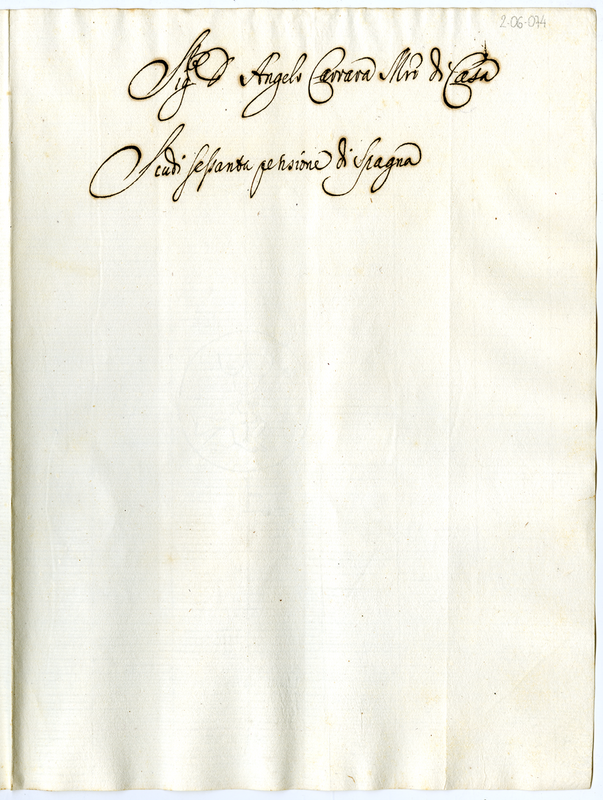 2-06-074
Sig.re D Angelo Carrara Mro di Casa
Scudi sessanta pensione di Spagna